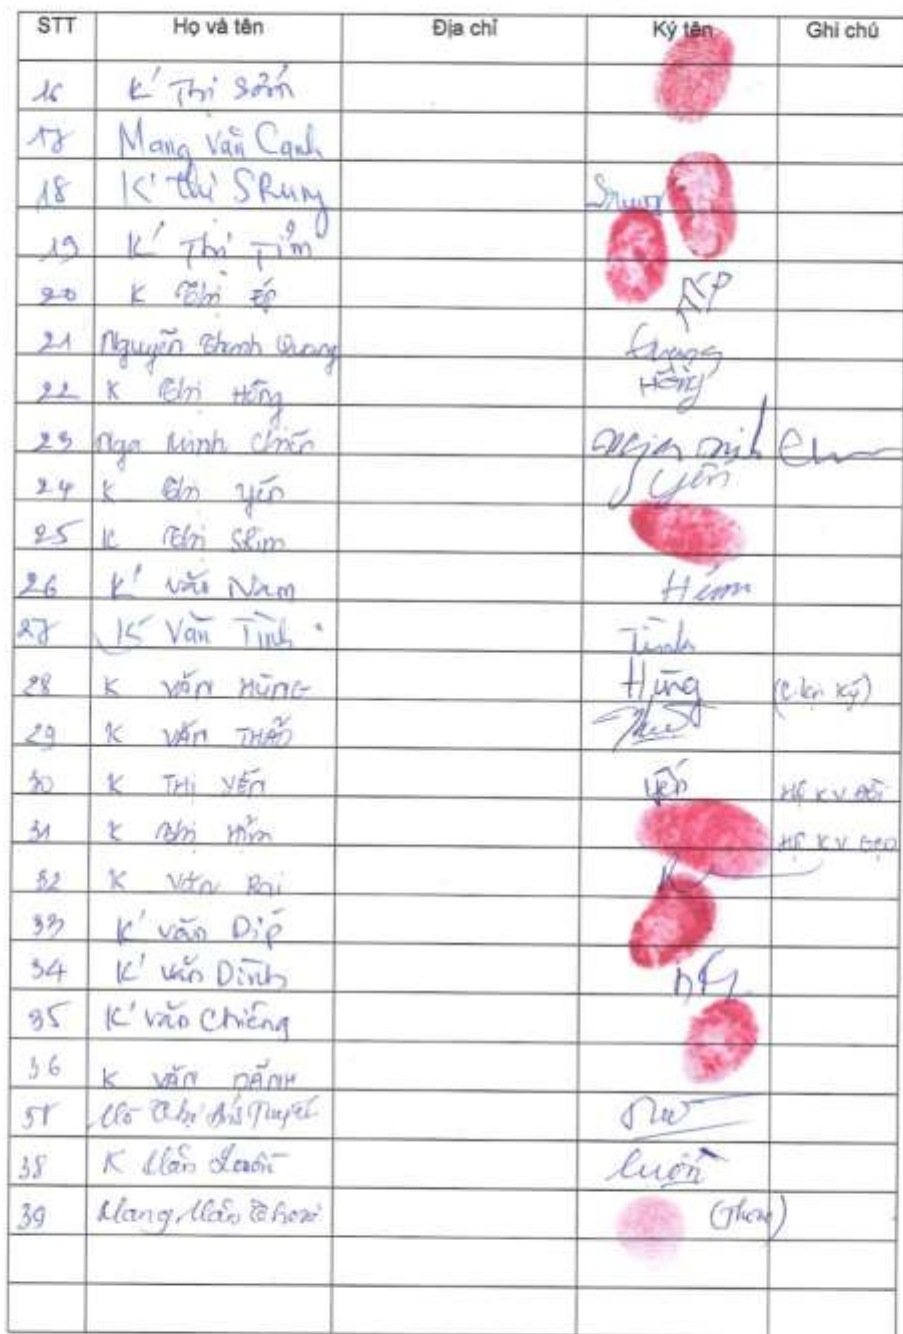 STT Họ và tên Địa chỉ Ký tên Ghi chú
16 K' Thị Sớm
17 Mang Văn Canh
18 K' Thị SRung Srung
19 K' Thị Tỉm
20 K Thị Ép ÉP
21 Nguyễn Thanh Quang Quang
22 K Thị Hồng Hồng
23 Ngo Minh Chiến
24 K Thị Yến Yến
25 K Thị SRim
26 K' Văn Nam
27 K' Văn Tình Tình
28 K VĂN HÙNG Hùng
29 K VĂN THẢO
30 K THỊ YẾN Yến
31 K Thị
32 K Văn Rai
33 K' Văn Díp
34 K' Văn Dinh
35 K' Văn Chiêng
36 K VĂN
37 Tuyết
38 K Văn Luôn luôn
39 Mang Văn